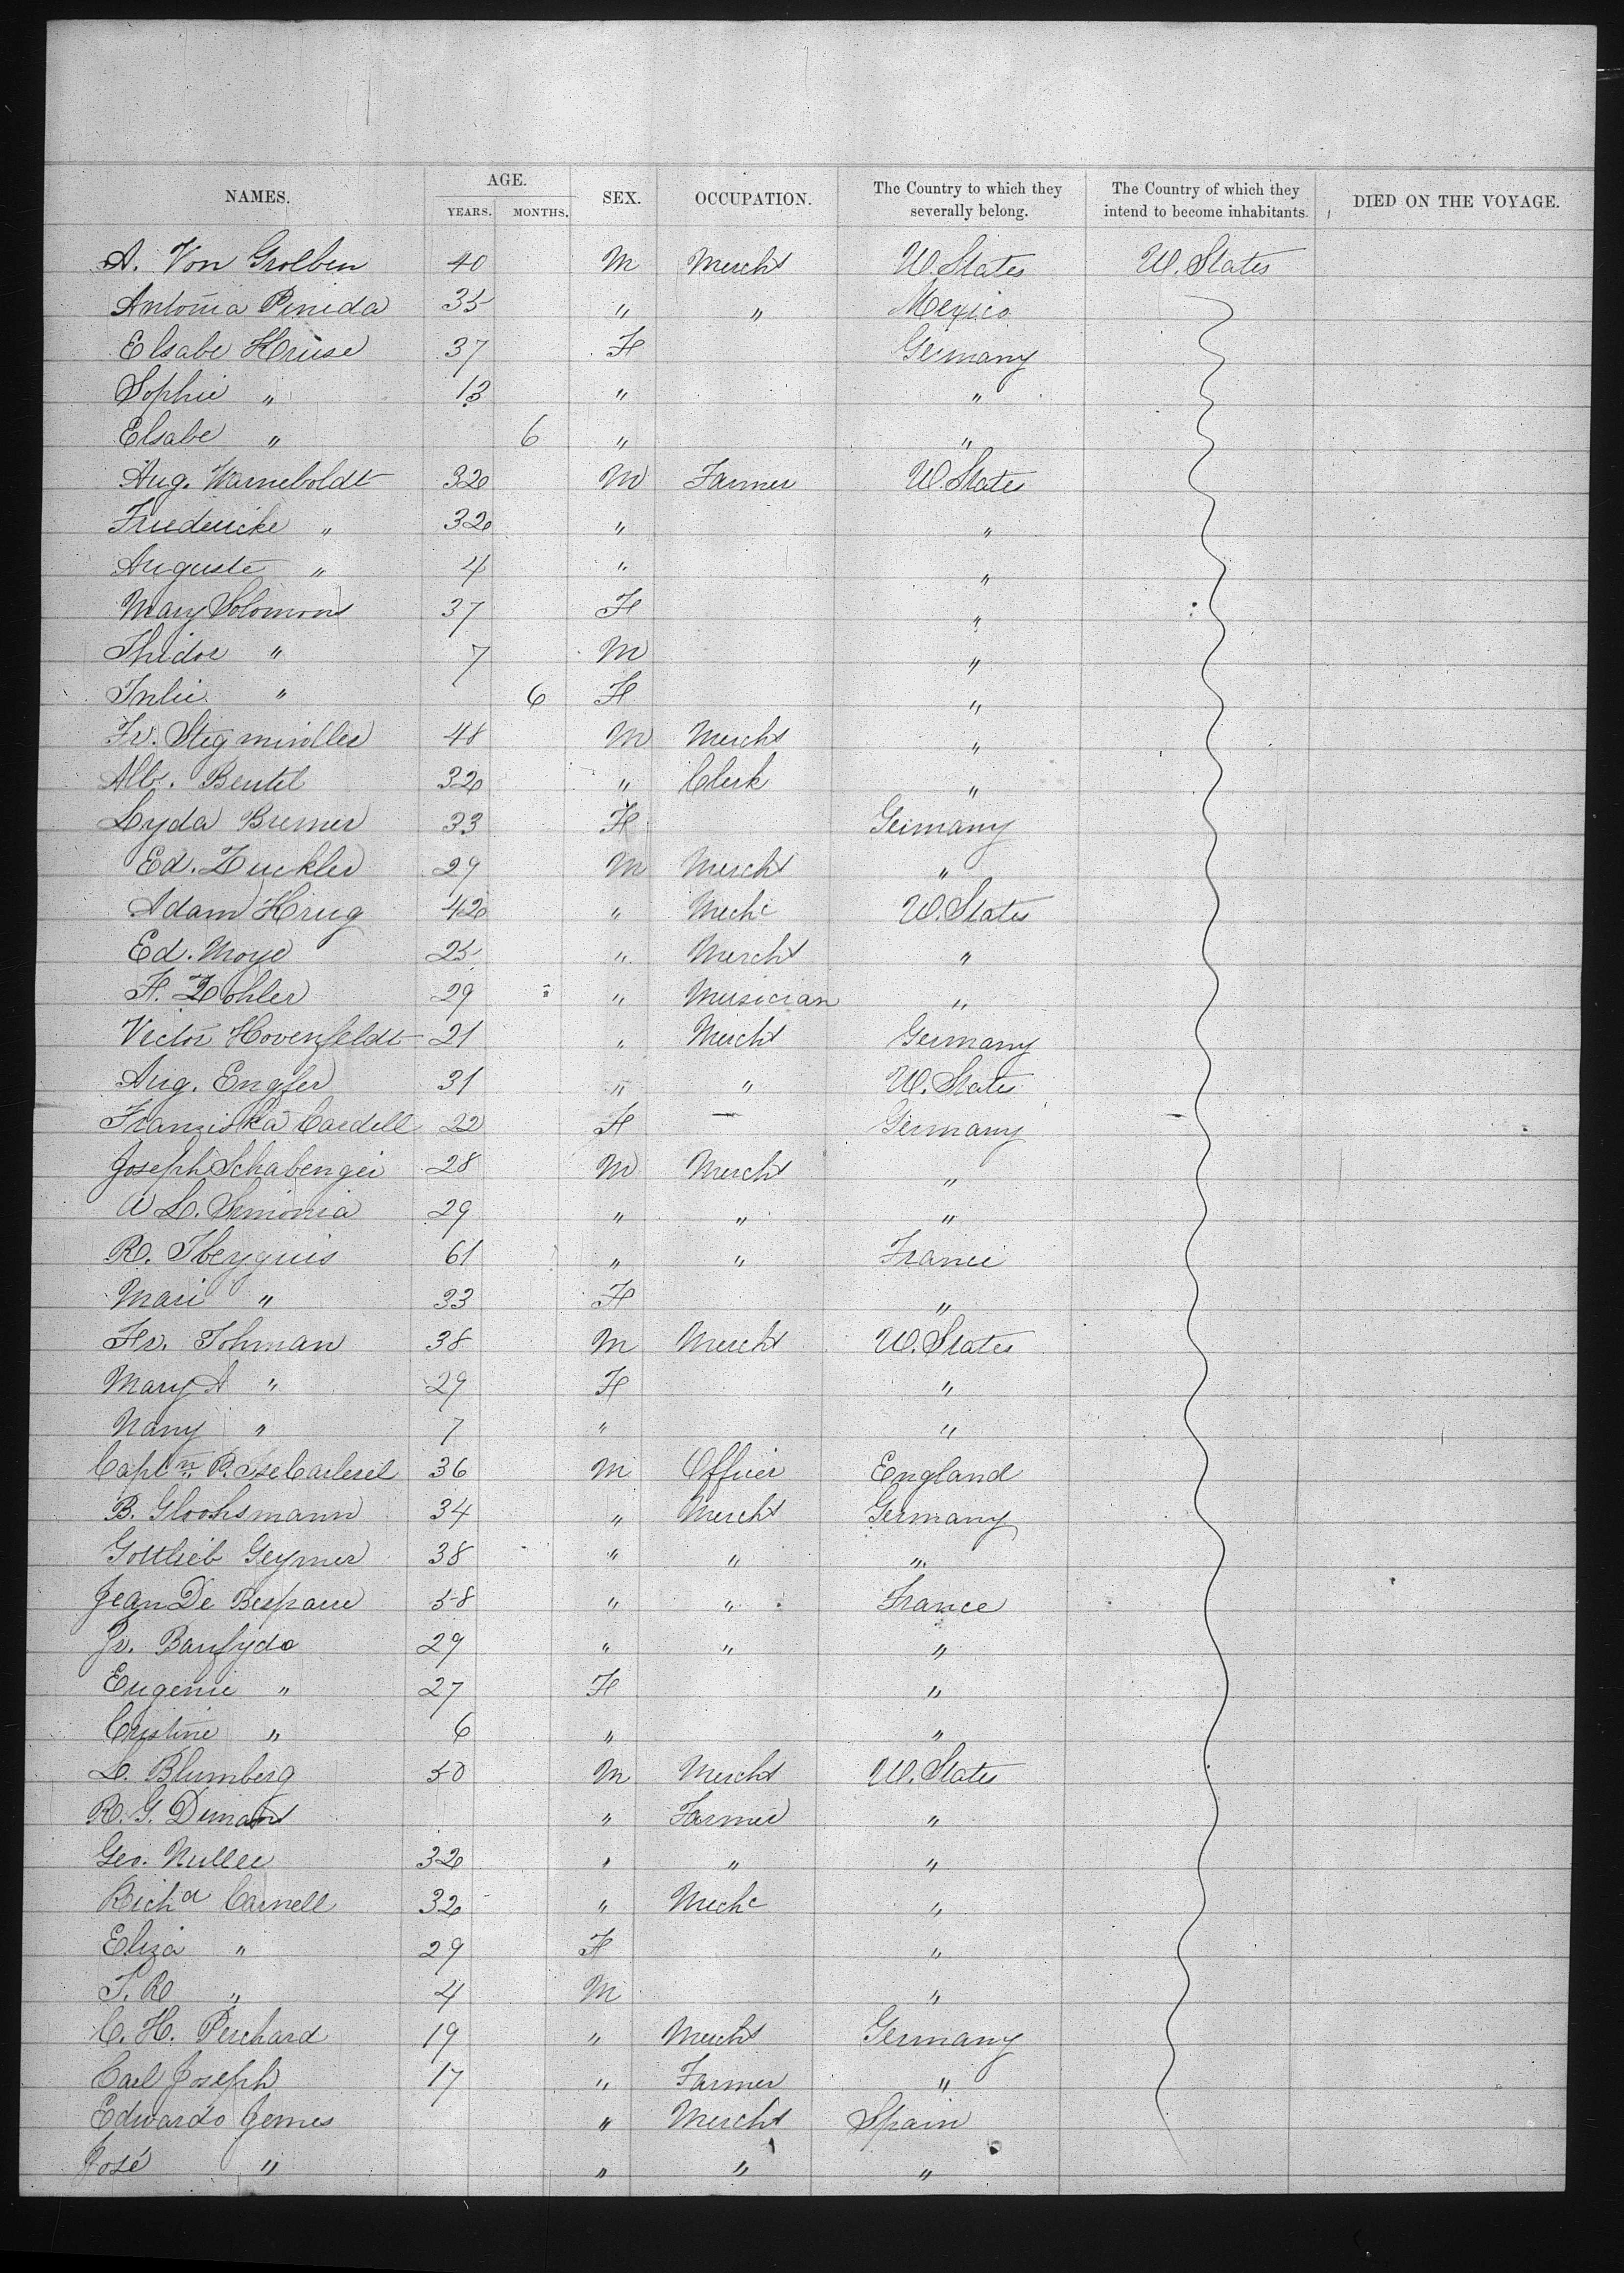 NAMES. AGE. YEARS. MONTHS. SEX. OCCUPATION. The Country to which they severally belong. The Country of which they intend to become inhabitants. DIED ON THE VOYAGE.
A. Von Grolben 40 M Mercht U. States U. States
Antonia Pinida 35 " " Mexico
Elsabe Kruse 37 F Germany
Sophie " 13 " "
Elsabe " 6 " "
Aug. Warneboldt 32 M Farmer U. States
Friedericke " 32 " "
Auguste " 4 " "
Mary Solomons 37 F "
" 7 M "
" 6 F "
Fr. 48 M Mercht "
Alb. Beutel 32 " Clerk "
Lyda Bremer 33 F Germany
Ed. Zuckler 29 M Mercht "
Adam Krug 42 " Mechc U. States
Ed. Moye 25 " Mercht "
F. Zohler 29 " Musician "
Victor Hovenfeldt 21 " Mercht Germany
Aug. Engler 31 " " U. States
Franziska Cardell 22 F — Germany
Joseph Schabenger 28 M Mercht "
L. Simonia 29 " " "
R. 61 " " France
Marie " 33 F "
Fr. Tohman 38 M Mercht U. States
Mary A " 29 F "
Nany " 7 " "
Captn P. 36 M Officer England
B. Gloohsmann 34 " Mercht Germany
Gottlieb Geymer 38 " " "
Jean De 58 " " France
Jr. 29 " " "
Eugenie " 27 F "
Cristine " 6 " "
L. Blumberg 50 M Mercht U. States
R. G. Dimant " Farmer "
Geo. Muller 32 " " "
Richd Carnell 32 " Mechc "
Eliza " 29 F "
T. R " 4 M "
C. H. Perchard 19 " Mercht Germany
Carl Joseph 17 " Farmer "
Edwardo Gemes " Mercht Spain
José " " " "